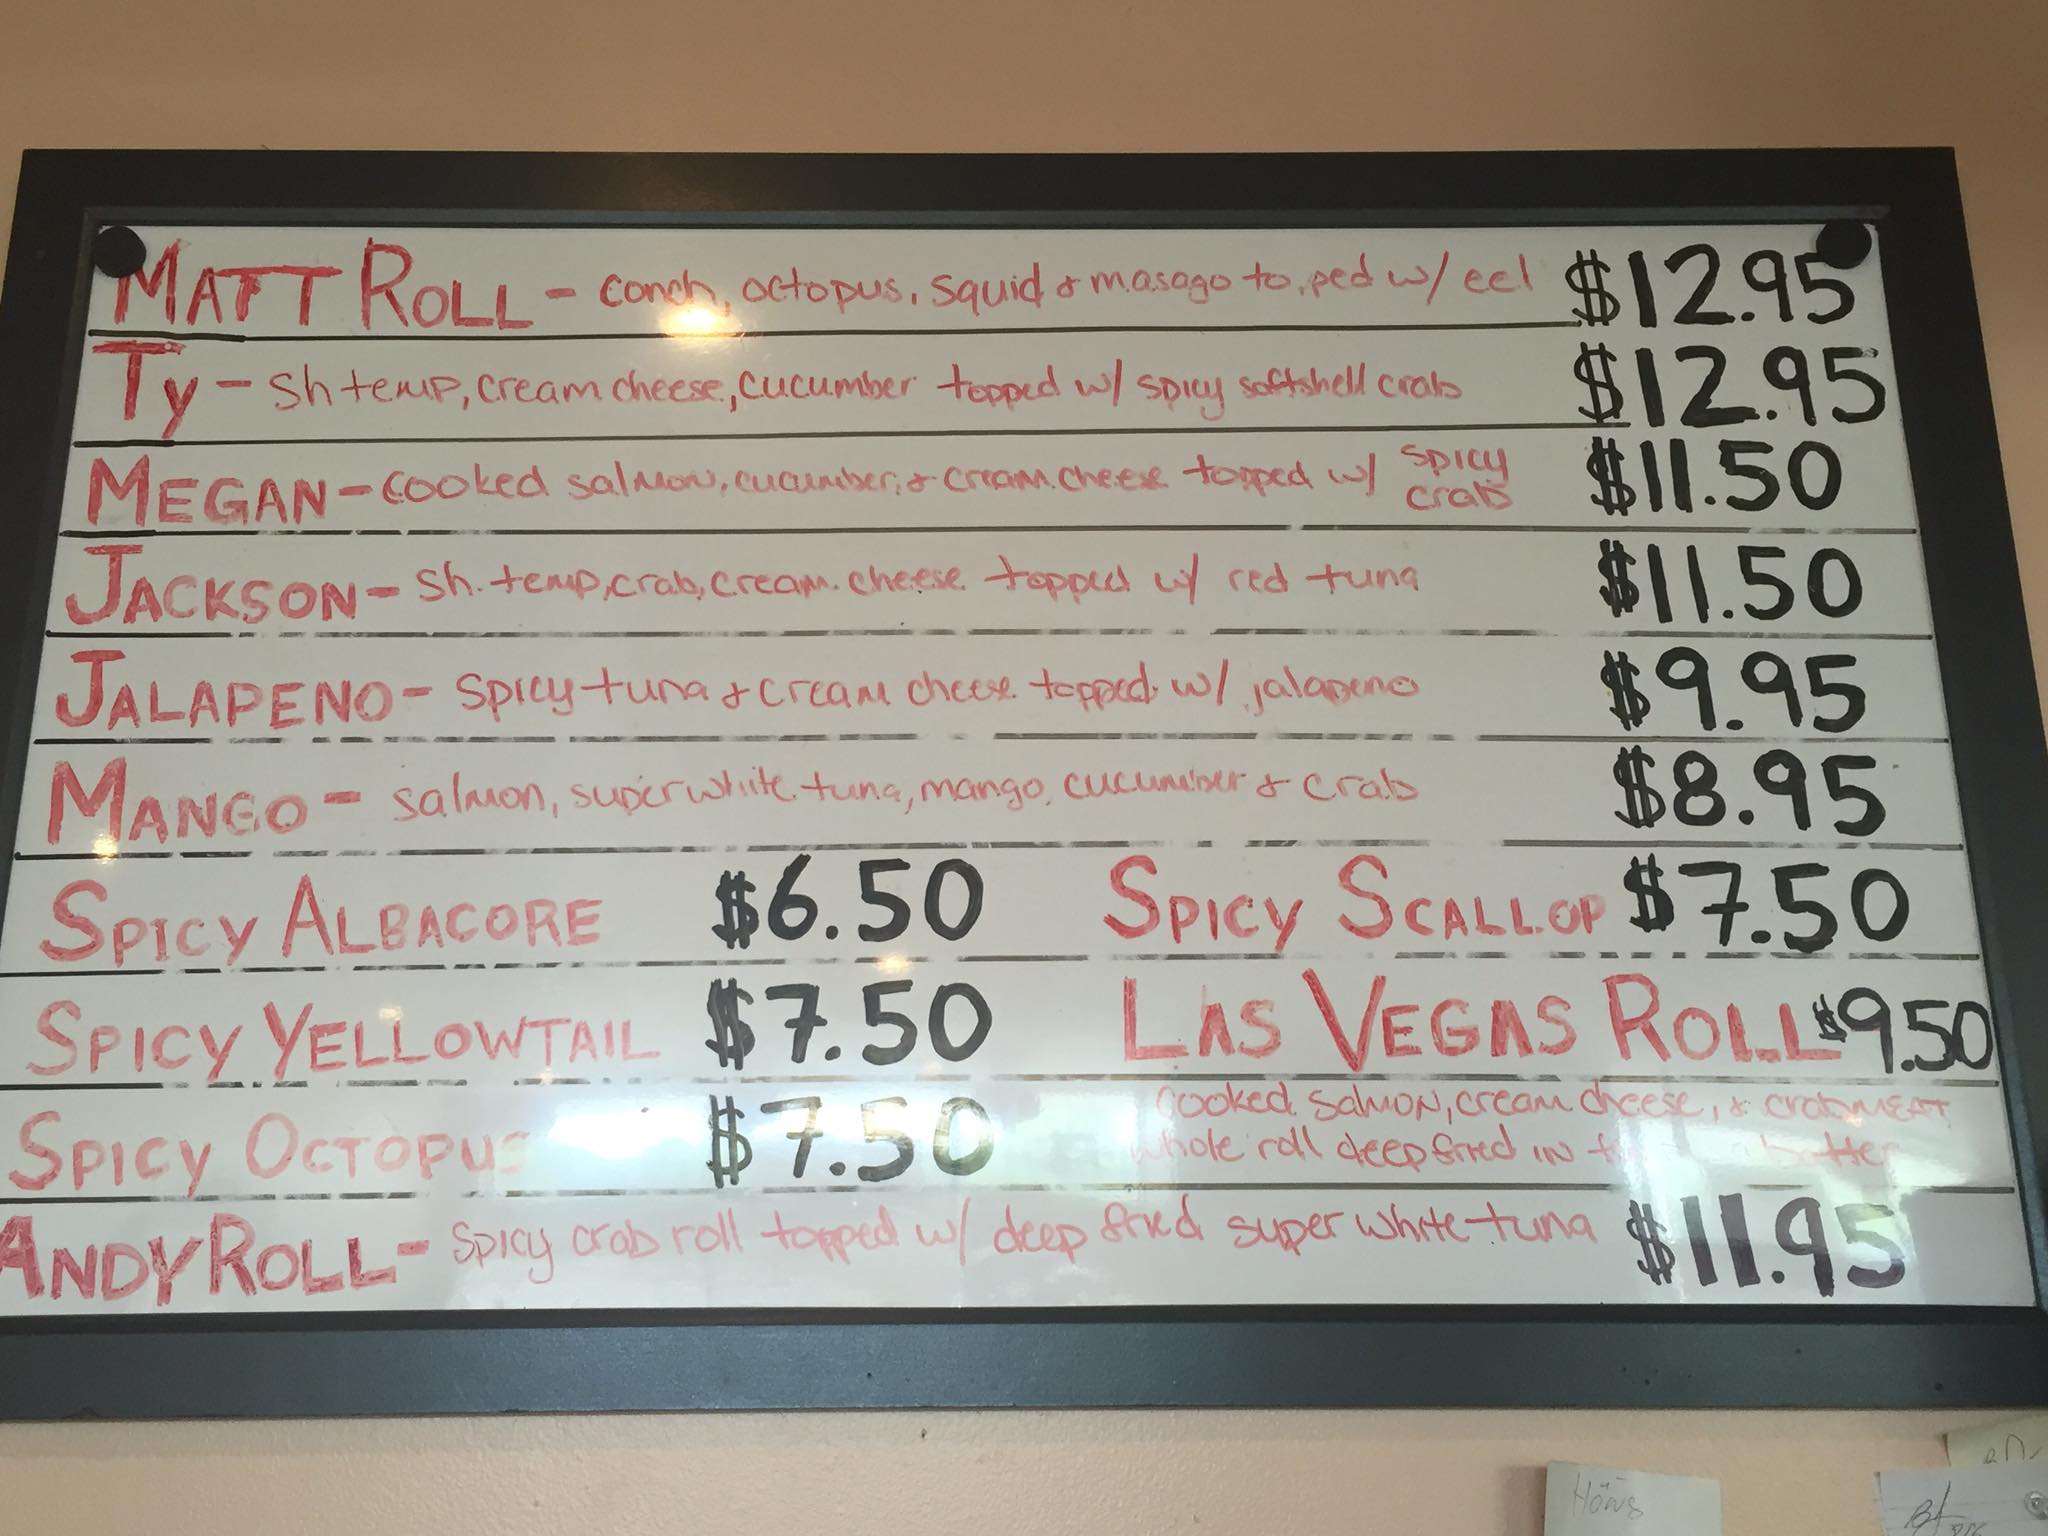 MATT ROLL - conch, octopus, squid & masago to,ped w/ eel $12.95
Ty - sh temp, cream cheese, cucumber topped w/ spicy softshell crab $12.95
MEGAN - cooked salmon, cucumber, & cream cheese topped w/ spicy crab $11.50
JACKSON - sh. temp, crab, cream cheese topped w/ red tuna $11.50
JALAPENO - spicy tuna & cream cheese topped w/ jalapeno $9.95
MANGO - salmon, super white tuna, mango, cucumber & crab $8.95
SPICY ALBACORE $6.50 SPICY SCALLOP $7.50
SPICY YELLOWTAIL $7.50 LAS VEGAS ROLL $9.50
SPICY OCTOPUS $7.50
cooked salmon, cream cheese, & crabmeat
whole roll deep fried IN batter
ANDY ROLL - spicy crab roll topped w/ deep fried super white tuna $11.95